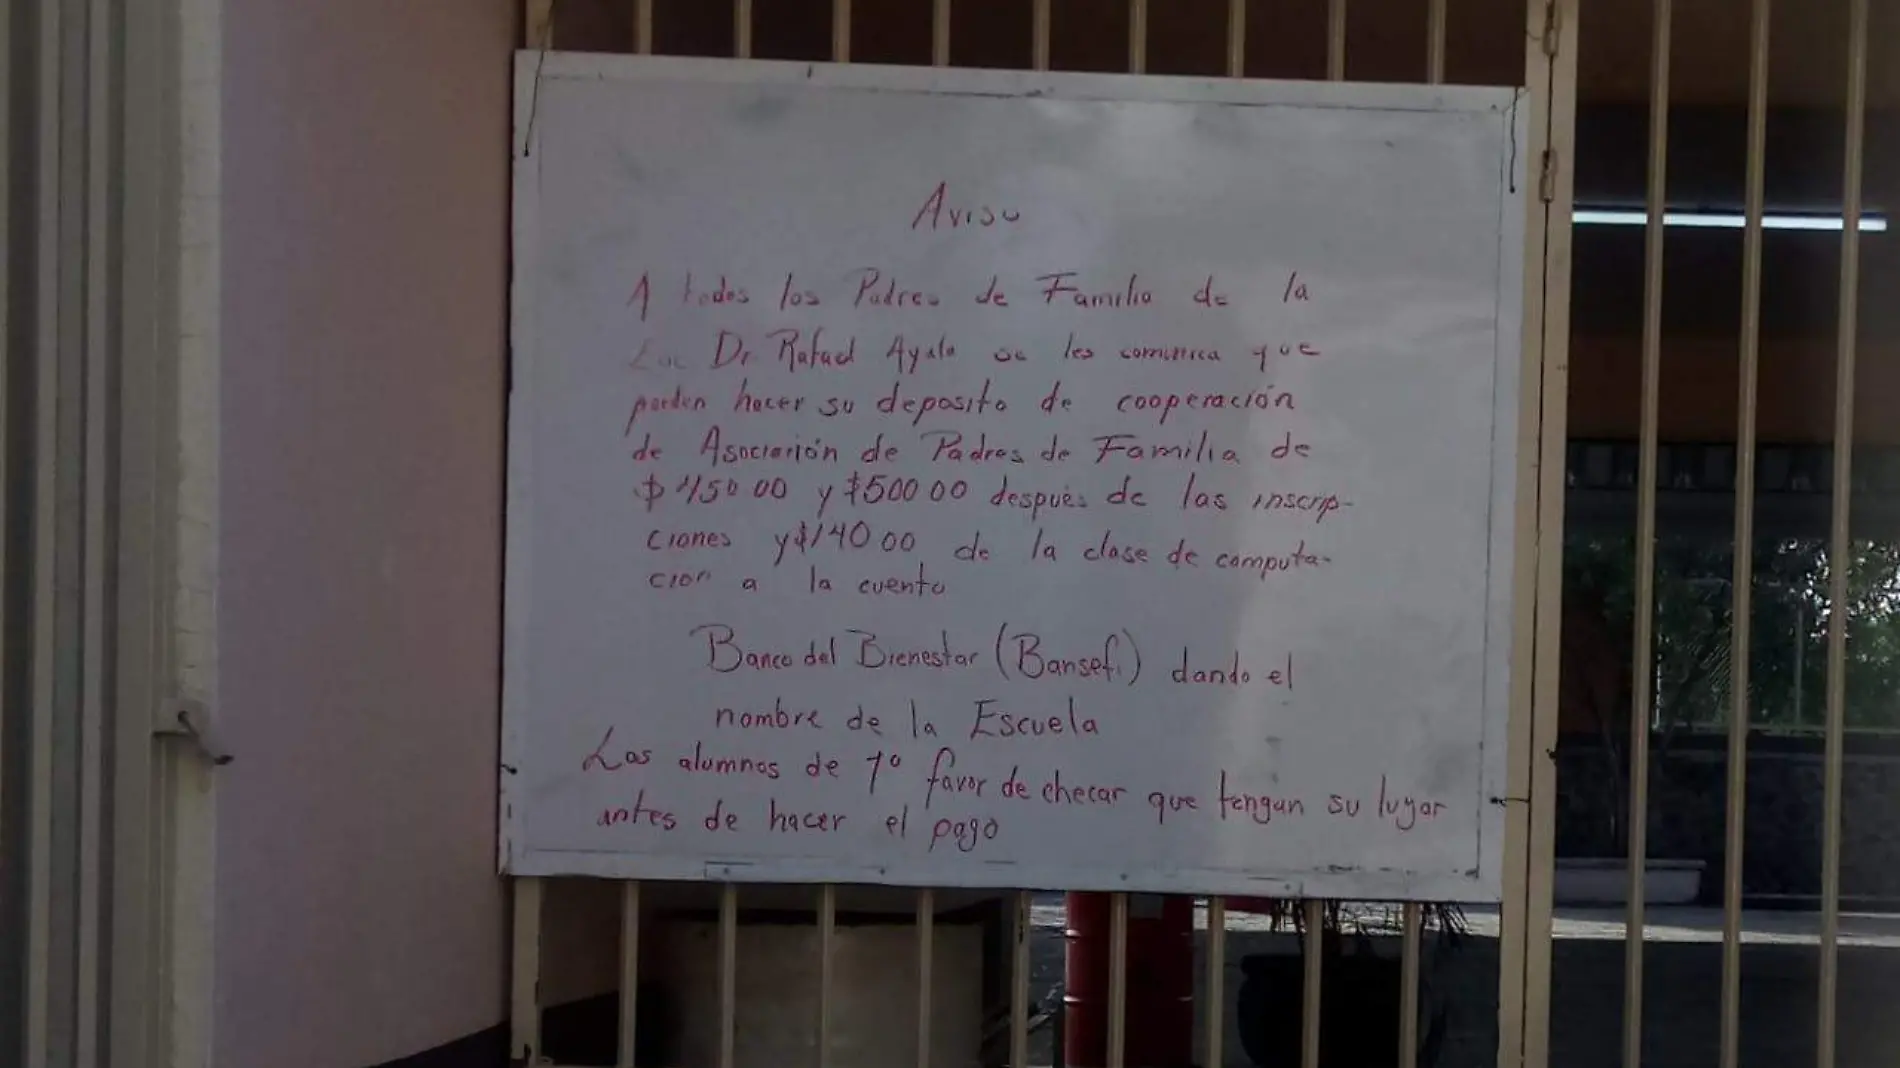 Aviso
A todos los Padres de Familia de la
Dr Rafael Ayala se les comunica que
pueden hacer su deposito de cooperación
de Asociación de Padres de Familia de
$450 00 y $500 00 después de las inscrip-
ciones y $140 00 de la clase de computa-
cion a la cuenta
Banco del Bienestar (Bansefi) dando el
nombre de la Escuela
Los alumnos de 1º favor de checar que tengan su lugar
antes de hacer el pago